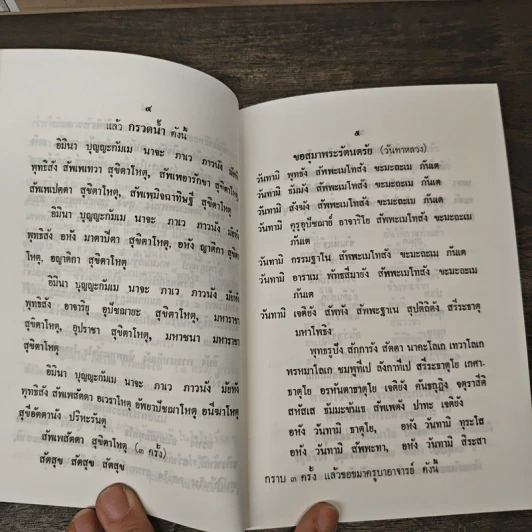 ๔
แล้ว กรวดน้ำ ดังนี้
อิมินา บุญญะกัมเม นาจะ ภาเว ภาวนัง มัยหัง
พุทธิสัง สัพเพเทวา สุขิตาโหตุ, สัพเพอารักขา สุขิตาโหตุ
สัพเพเปตตา สุขิตาโหตุ, สัพเพมิจฉาทิษฐี สุขิตาโหตุ
อิมินา บุญญะกัมเม นาจะ ภาเว ภาวนัง มัยหัง
พุทธิสัง อหัง มาตาปิตา สุขิตาโหตุ, อหัง ญาติกา สุขิตา
โหตุ, อญาติกา สุขิตาโหตุ
อิมินา บุญญะกัมเม นาจะ ภาเว ภาวนัง มัยหัง
พุทธิสัง อาจาริยู อุปัชฌายะ สุขิตาโหตุ, มหาราชา
สุขิตาโหตุ, อุปราชา สุขิตาโหตุ, มหาชนา มหาราชา
สุขิตาโหตุ
อิมินา บุญญะกัมเม นาจะ ภาเว ภาวนัง มัยหัง
พุทธิสัง สัพเพสัตตา อเวราโหตุ อัพยาปัชฌาโหตุ อนีฆาโหตุ
สุขีอัตตานัง ปริหะรันตุ
สัพเพสัตตา สุขิตาโหตุ (๓ ครั้ง)
สัตสุข สัตสุข สัตสุข
๕
ขอสุมาพระรัตนตรัย (วันทาหลวง)
วันทามิ พุทธัง สัพพะเมโทสัง ขะมะถะเม ภันเต
วันทามิ ธัมมัง สัพพะเมโทสัง ขะมะถะเม ภันเต
วันทามิ สังฆัง สัพพะเมโทสัง ขะมะถะเม ภันเต
วันทามิ คุรูอุปัชฌาย์ อาจาริโย สัพพะเมโทสัง ขะมะถะเม
ภันเต
วันทามิ กรรมฐาโน สัพพะเมโทสัง ขะมะถะเม ภันเต
วันทามิ อาราเม พัทธสีมายัง สัพพะเมโทสัง ขะมะถะเม
ภันเต
วันทามิ เจติยัง สัพพัง สัพพะฐาเน สุปติถิตัง สรีระธาตุ
มหาโพธิง
พุทธรูปัง สักการัง สัตตา นาคะโลเก เทวาโลเก
พรหมาโลเก ชมพูทีเป ลังกาทีเป สรีระธาตุโย เกศา-
ธาตุโย อรหันตาธาตุโย เจติยัง คันธกุฎิง จตุราสีติ
สหัสเส ธัมมะขันเธ สัพเพตัง ปาทะ เจติยัง
อหัง วันทามิ ธาตุโย, อหัง วันทามิ ทุระโส
อหัง วันทามิ สัพพะทา, อหัง วันทามิ สิระสา
กราบ ๓ ครั้ง แล้วขอขมาครูบาอาจารย์ ดังนี้